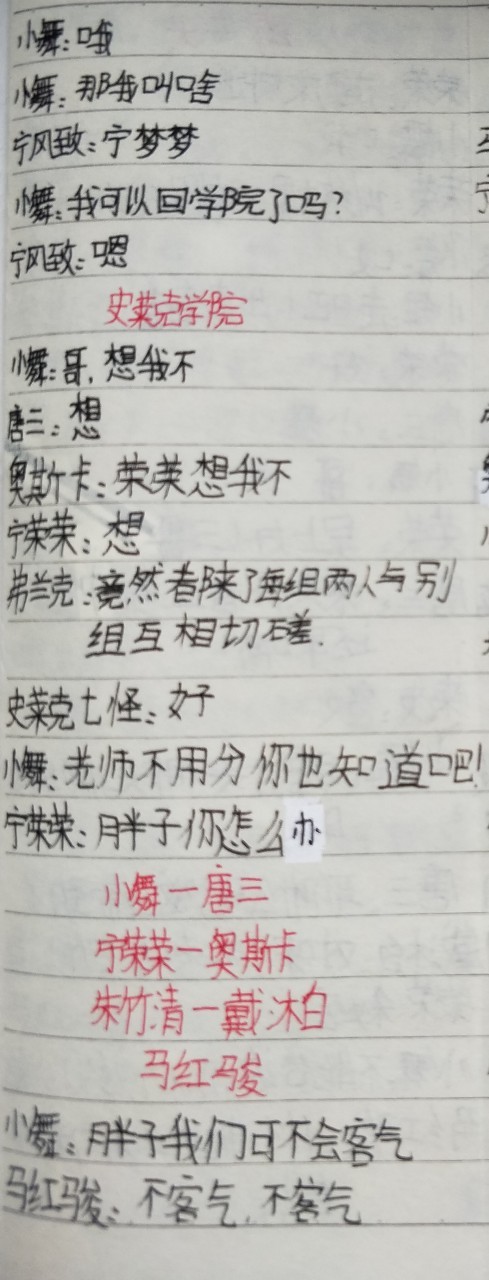 小舞：哦
小舞：那我叫啥
宁风致：宁梦梦
小舞：我可以回学院了吗？
宁风致：嗯
史莱克学院
小舞：哥，想我不
唐三：想
奥斯卡：荣荣想我不
宁荣荣：想
弗兰克：竟然都来了每组两人与别
组互相切磋.
史莱克七怪：好
小舞：老师不用分你也知道吧！
宁荣荣：胖子你怎么办
小舞一唐三
宁荣荣一奥斯卡
朱竹清一戴沐白
马红骏
小舞：胖子我们可不会客气
马红骏：不客气，不客气